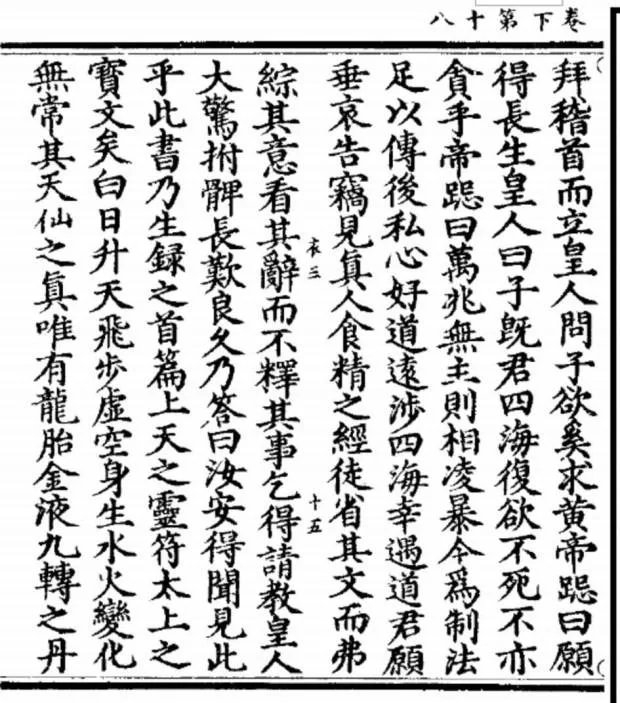 卷下第十八
拜稽首而立皇人問子欲奚求黃帝跽曰願
得長生皇人曰子旣君四海復欲不死不亦
貪乎帝跽曰萬兆無主則相凌暴今爲制法
足以傳後私心好道遠涉四海幸遇道君願
垂哀告竊見眞人食精之經徒省其文而弗
衣三
十五
綜其意看其辭而不釋其事乞得請教皇人
大驚拊髀長歎良久乃答曰汝安得聞見此
乎此書乃生録之首篇上天之靈符太上之
寶文矣白日升天飛步虛空身生水火變化
無常其天仙之眞唯有龍胎金液九轉之丹